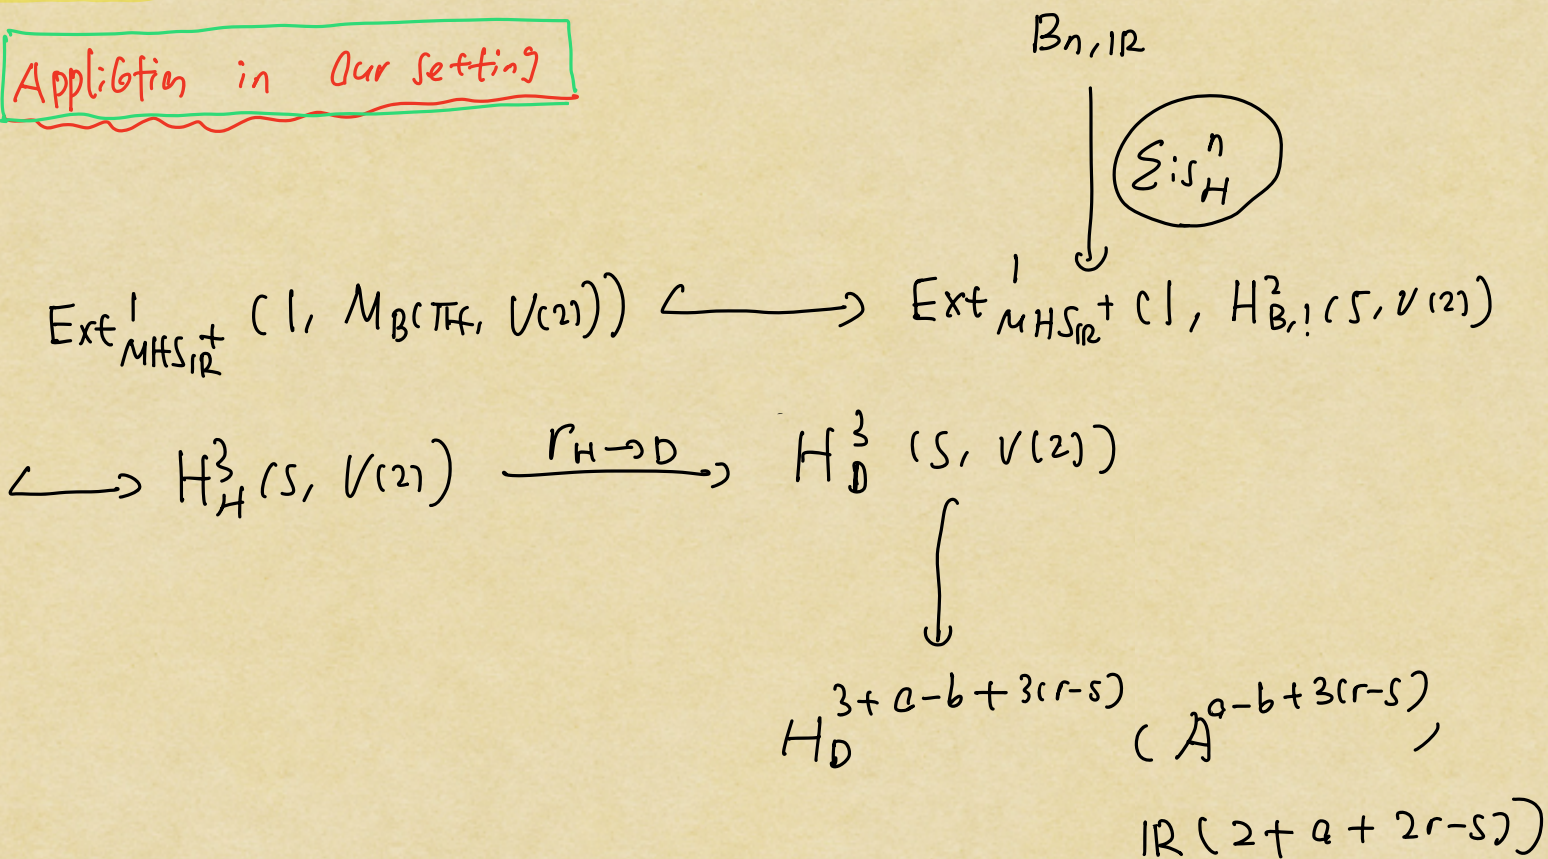 Application in Our setting
B_{n, IR}
Eis^n_H
Ext^1_{MHS_{IR}^+} (1, M_B(π_f, V(2))) ⟷ Ext^1_{MHS_{IR}^+} (1, H^2_{B,!}(S, V(2))
↪ H^3_H (S, V(2)) r_{H→D} → H^3_D (S, V(2))
H_D^{3+a-b+3(r-s)} (A^{a-b+3(r-s)},
IR(2+a+2r-s))